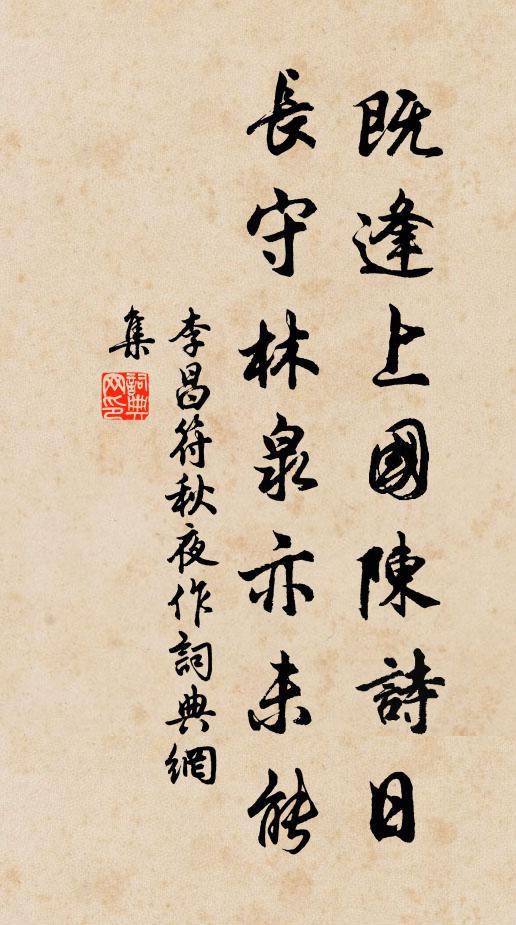 既逢上國陳詩日
長守林泉亦未能
李昌符秋夜作詞典網
集
詞典
网印